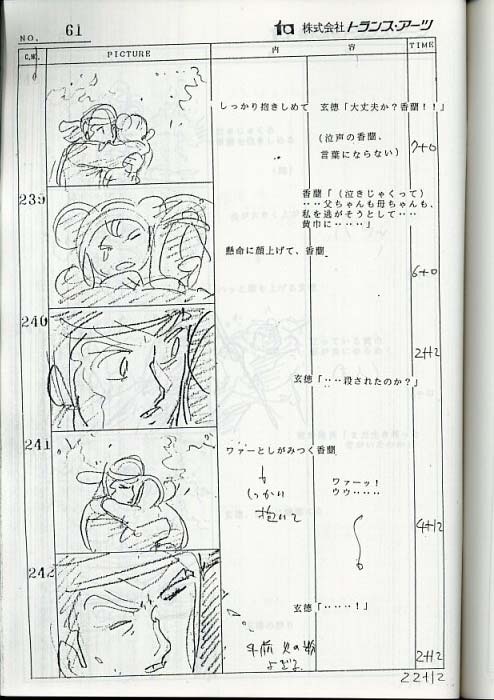 NO. 61
株式会社トランス・アーツ
C.N. PICTURE 内 容 TIME
しっかり抱きしめて 玄徳「大丈夫か?香蘭!!」
(泣声の香蘭、
言葉にならない)
7+0
239
香蘭「(泣きじゃくって)
‥‥父ちゃんも母ちゃんも、
私を逃がそうとして‥‥
黄巾に‥‥」
懸命に顔上げて、香蘭
6+0
240
2+12
玄徳「‥‥殺されたのか?」
241
ワァーとしがみつく香蘭
しっかり
抱いて
ワァーッ!
ウウ‥‥‥
4+12
242
玄徳「‥‥‥!」
手前
よぎる
2+12
22+12